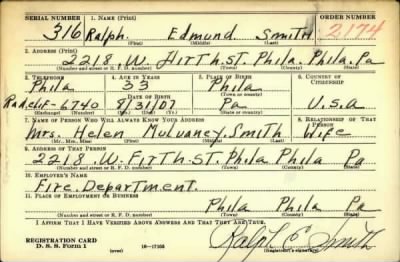 SERIAL NUMBER 1. NAME (Print) ORDER NUMBER
316 Ralph. Edmund Smith 2174
(First) (Middle) (Last)
2. ADDRESS (Print)
2218 W. FirTh.ST. Phila. Phila. Pa
(Number and street or R. F. D. number) (Town) (County) (State)
3. TELEPHONE 4. AGE IN YEARS 5. PLACE OF BIRTH 6. COUNTRY OF CITIZENSHIP
Phila 33 Phila
(Town or county)
Radclif-6740 8/31/07 Pa U.S.A
(Exchange) (Number) (Mo.) (Day) (Yr.) (State or country)
7. NAME OF PERSON WHO WILL ALWAYS KNOW YOUR ADDRESS 8. RELATIONSHIP OF THAT PERSON
Mrs. Helen Mulvaney. Smith Wife
(Mr., Mrs., Miss) (First) (Middle) (Last)
9. ADDRESS OF THAT PERSON
2218 .W. FirTh.ST. Phila Phila Pa
(Number and street or R. F. D. number) (Town) (County) (State)
10. EMPLOYER'S NAME
Fire. Department.
11. PLACE OF EMPLOYMENT OR BUSINESS
Phila Phila Pa
(Number and street or R. F. D. number) (Town) (County) (State)
I AFFIRM THAT I HAVE VERIFIED ABOVE ANSWERS AND THAT THEY ARE TRUE.
REGISTRATION CARD
D. S. S. Form 1 (over) 16-17105 Ralph E Smith
(Registrant's signature)